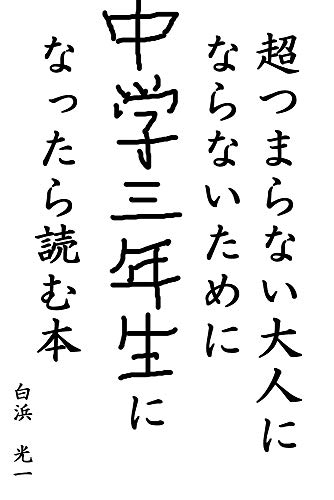 超つまらない大人に
ならないために
中学三年生に
なったら読む本
白浜 光一